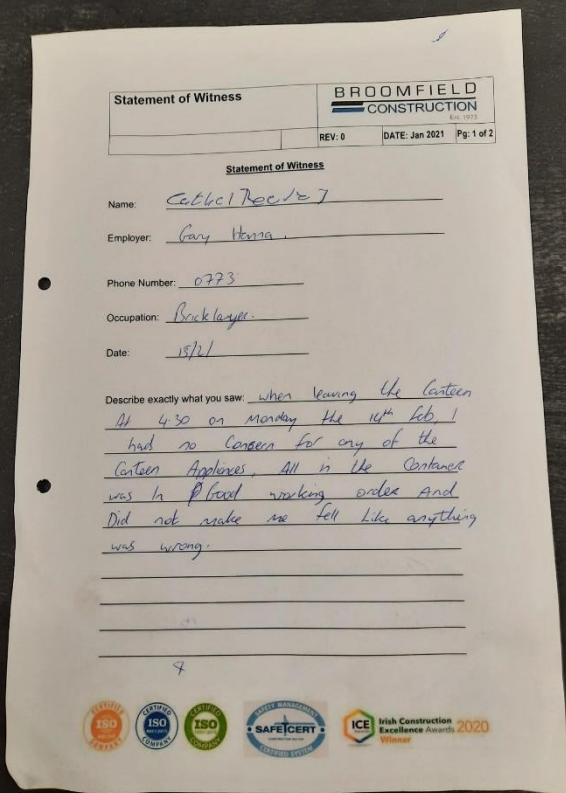 Statement of Witness
BROOMFIELD
CONSTRUCTION
Est. 1973
REV: 0 DATE: Jan 2021 Pg: 1 of 2
Statement of Witness
Name: Cathal
Employer: Gary Hanna.
Phone Number: 0773
Occupation: Bricklayer.
Date: 15/2/
Describe exactly what you saw: when leaving the Canteen
At 4.30 on Monday the 14th Feb, I
had no Concern for any of the
Canteen Appliances, All in the Container
was In Good working order And
Did not make me fell Like anything
was wrong.
CERTIFIED ISO COMPANY
CERTIFIED ISO COMPANY
CERTIFIED ISO COMPANY
SAFETY MANAGEMENT
SAFE T CERT
CERTIFIED SYSTEM
ICE Irish Construction
Excellence Awards 2020
Winner